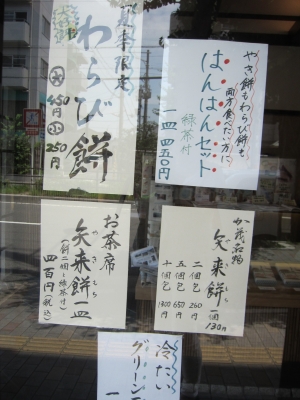 期間限定
わらび餅
大450円
小250円
やき餅もわらび餅も
両方食べたい方に
はんはんセット
緑茶付
一皿四五〇円
お茶席
矢来餅一皿
やきもち
(餅二個・緑茶付)
四百円(税込)
加茂名物
矢来餅
やきもち
一個130円
二個包 260円
五個包 650円
十個包 1300円
冷たい
グリーン
一